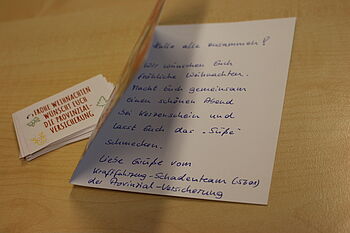 FROHE WEIHNACHTEN
WÜNSCHT EUCH
DIE PROVINZIAL-
VERSICHERUNG
Hallo alle zusammen!
Wir wünschen Euch
fröhliche Weihnachten.
Macht Euch gemeinsam
einen schönen Abend
bei Kerzenschein und
lasst Euch das "Süße"
schmecken.
Liebe Grüße vom
Kraftfahrzeug-Schadenteam (5501)
der Provinzial-Versicherung